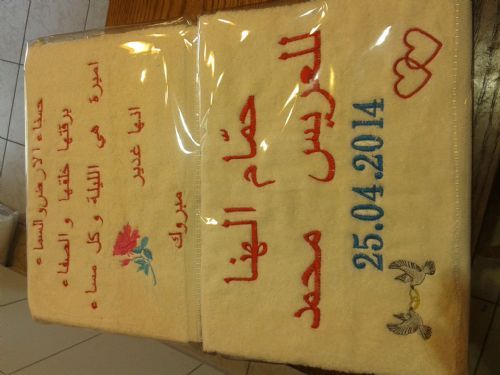 حسناء الارض والسماء
برقتها خلقها والصفاء
اميرة هي الليلة وكل مساء
انها غدير
مبروك
حمّام الهنا
للعريس محمد
25.04.2014